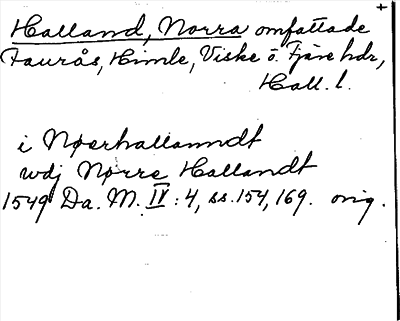 +
Halland, Norra omfattade
Faurås, Himle, Viske o. Fjäre hdr,
Hall. l.
i Nøerhallanndt
wdj Nørre Hallandt
1549 Da. M. IV : 4, ss. 154, 169. orig.